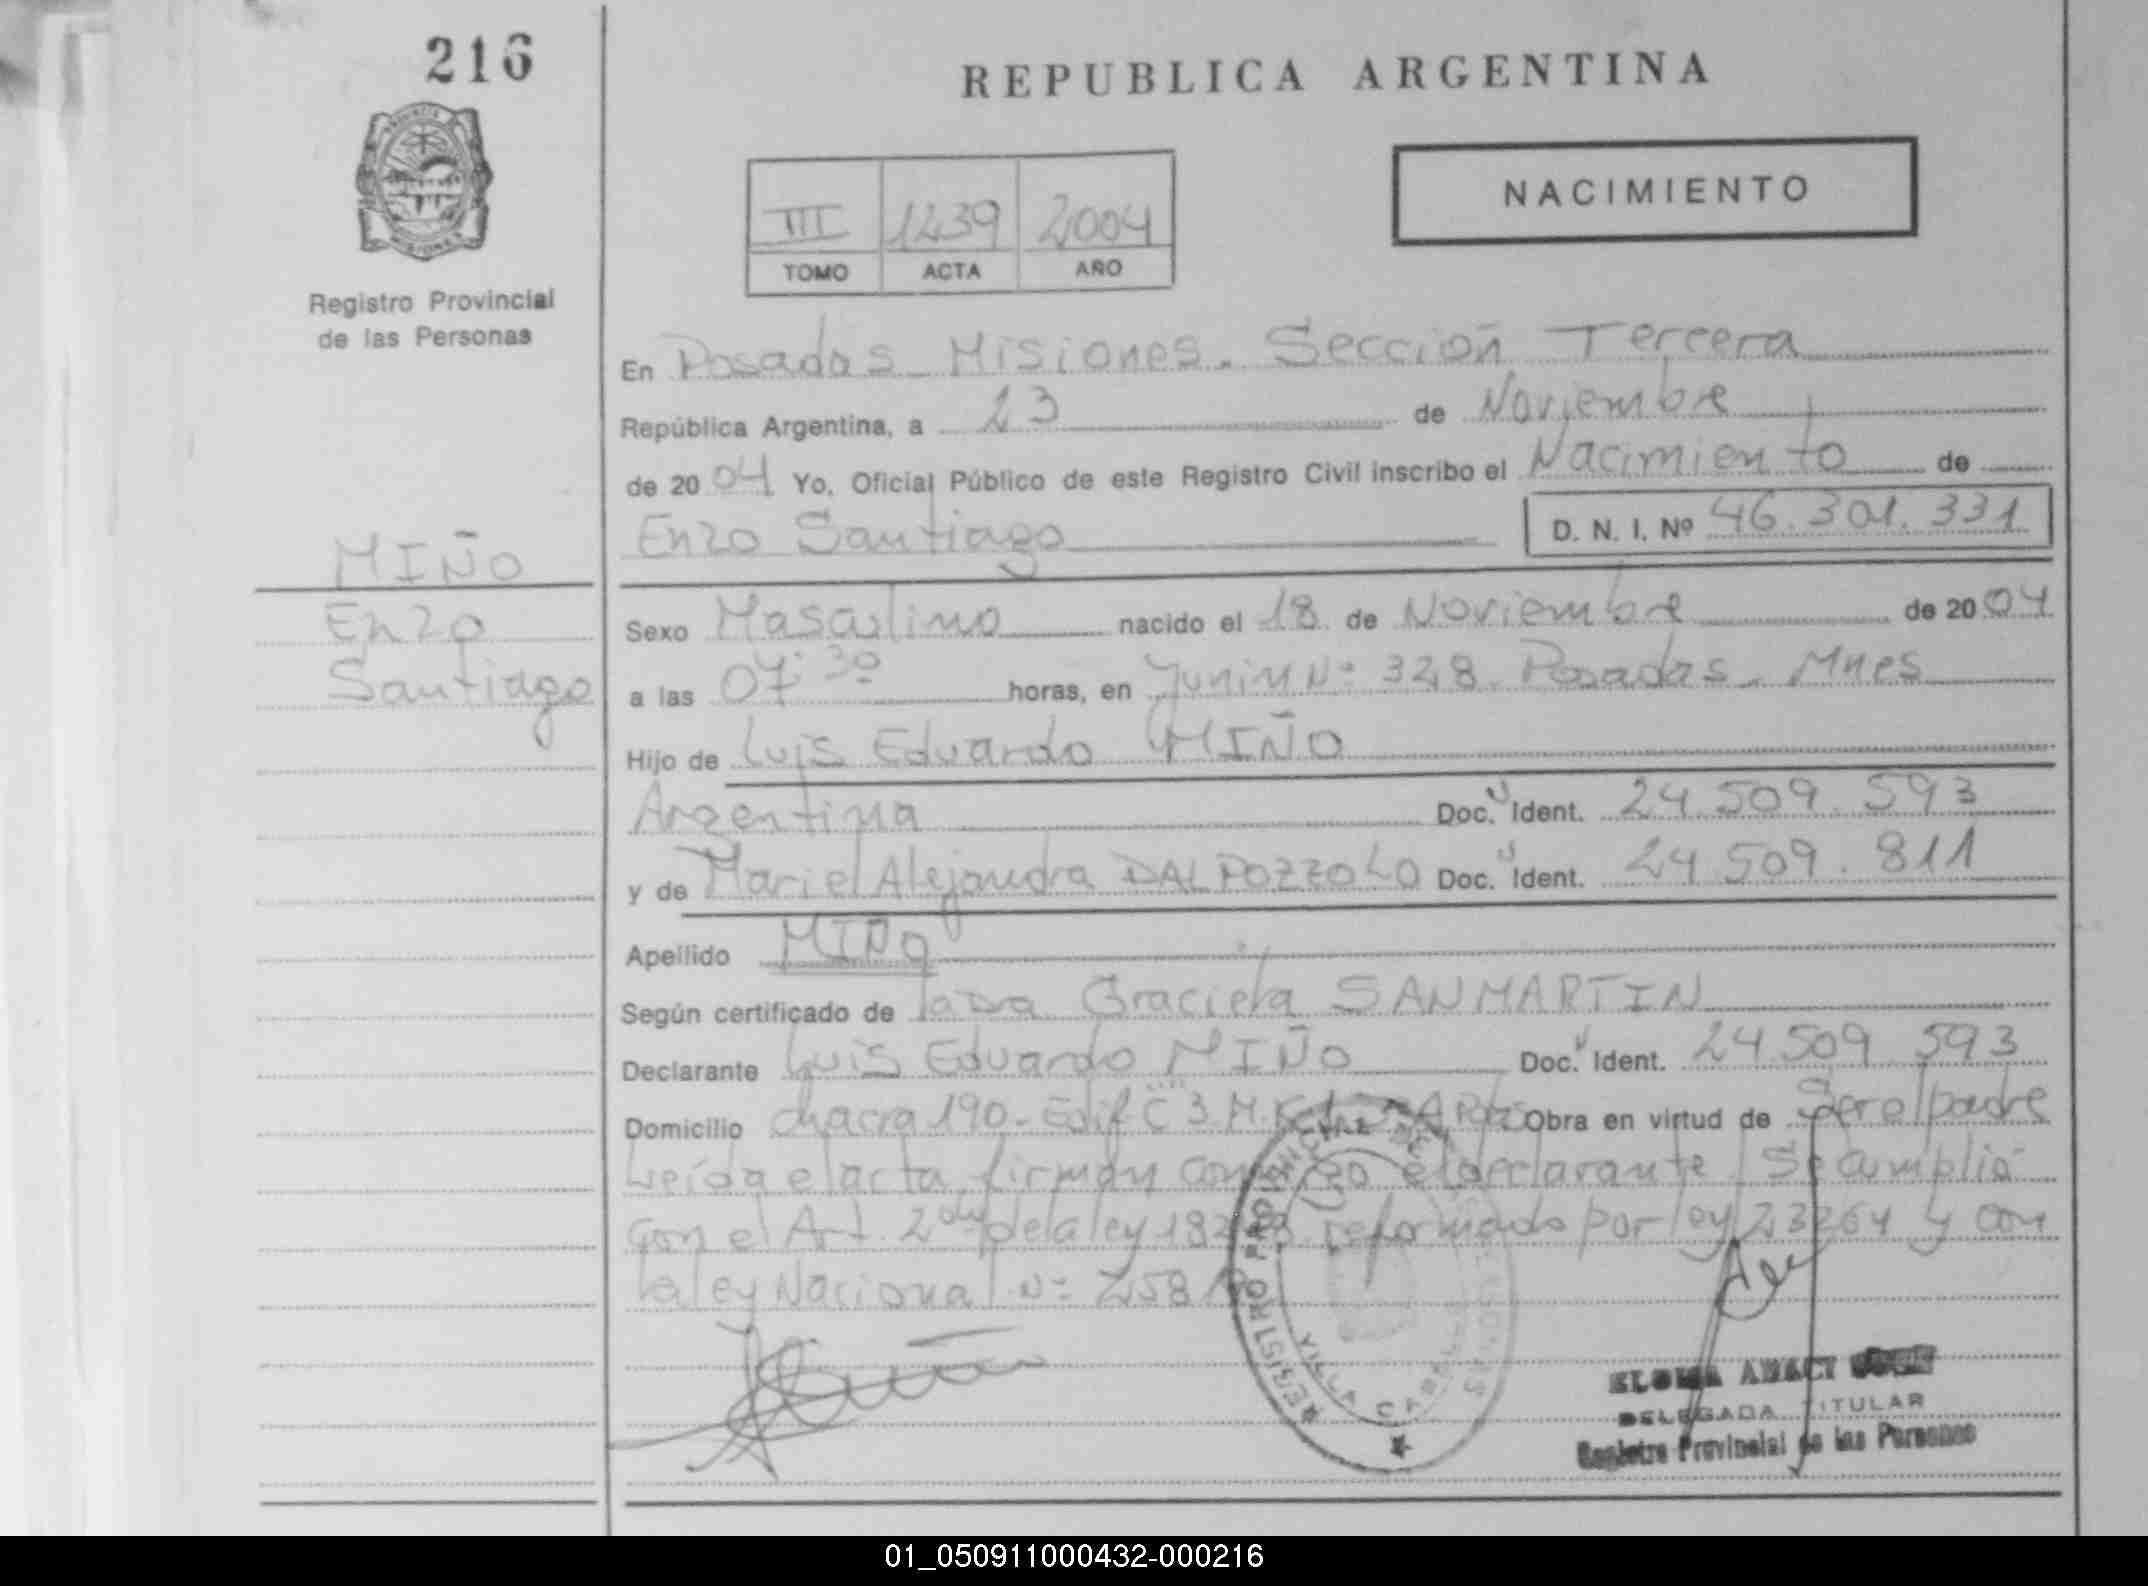 216
REPUBLICA ARGENTINA
NACIMIENTO
III 1239 2004
TOMO ACTA AÑO
Registro Provincial
de las Personas
En Posadas Misiones. Sección Tercera
República Argentina, a 23 de Noviembre
de 2004 Yo, Oficial Público de este Registro Civil inscribo el Nacimiento de
Enzo Santiago D. N. I. Nº 46.301.331
MIÑO
Enzo
Santiago
Sexo Masculino nacido el 18 de Noviembre de 2004
a las 07:30 horas, en Junin Nº 328 Posadas. Mnes
Hijo de Luis Eduardo MIÑO
Argentina Doc. Ident. 24.509.593
y de Mariel Alejandra DALPOZZOLO Doc. Ident. 24.509.811
Apellido MIÑO
Según certificado de Graciela SANMARTIN
Declarante Luis Eduardo MIÑO Doc. Ident. 24.509.593
Domicilio chacra 190 - Edif. C 3 Obra en virtud de Ser el padre
Leída el acta firman conmigo el declarante Se cumplió
con el Art. 2 de la ley 18248 reformado por ley 23264 y con
la ley Nacional Nº
REGISTRO PROVINCIAL DE
VILLA
DELEGADA TITULAR
Registro Provincial de las Personas
01_050911000432-000216